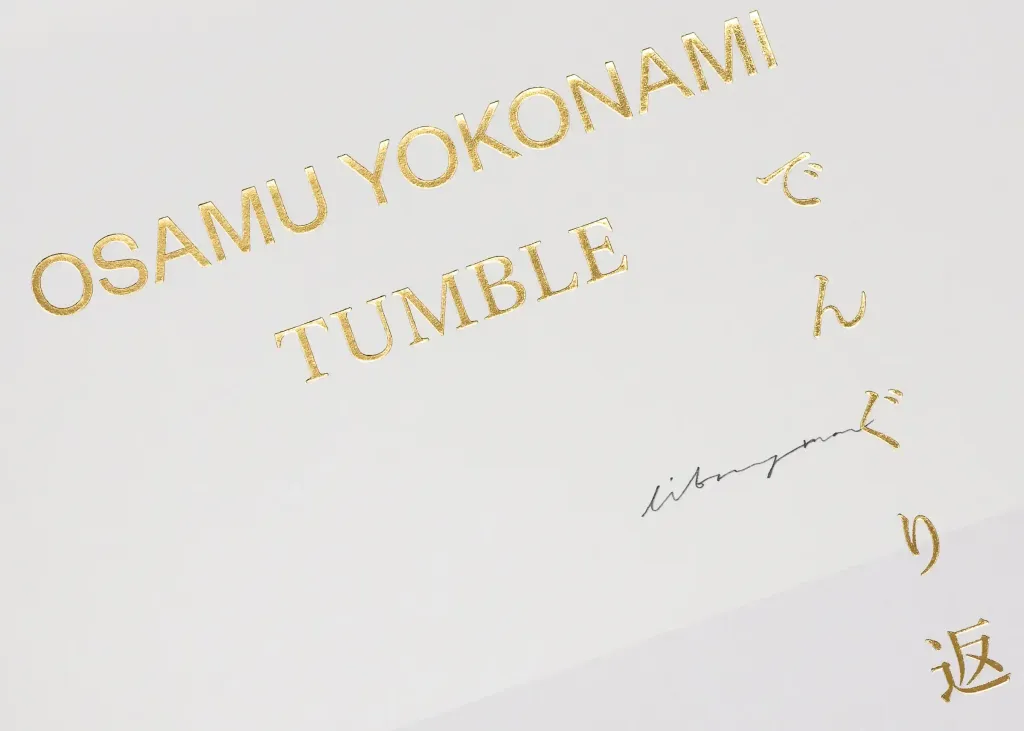 OSAMU YOKONAMI
TUMBLE
でんぐり返
libraryman